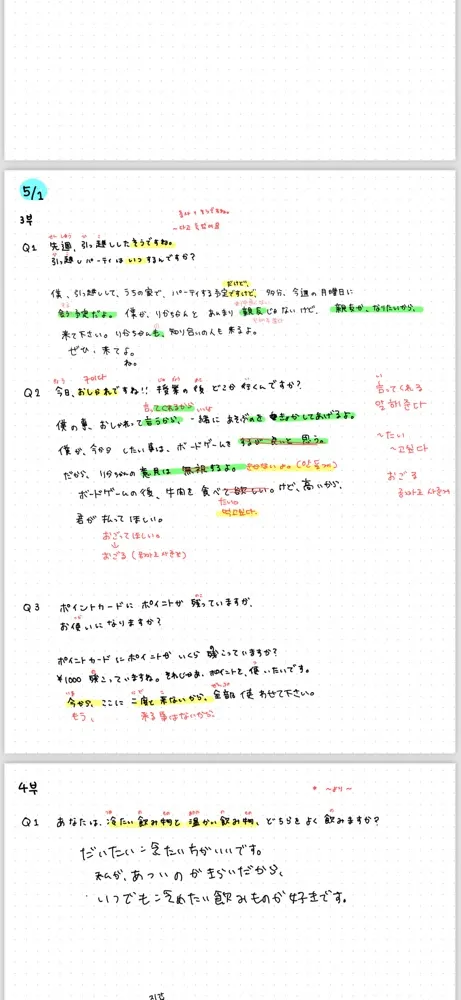 5/1
3부
Q1 先週、引っ越ししたそうですね。
引っ越しパーティはいつするんですか?
だけど、
僕、引っ越しして、うちの家で、パーティする予定ですけど、多分、今週の月曜日に
会う予定だよ。僕が、りかちゃんと あんまり 親友じゃないけど、親友が、なりたいから、
来て下さい。りかちゃんも、知り合いの人も 来るよ。
ぜひ、来てよ。
ね。
Q2 今日、おしゃれですね!! 授業の後 どこか 行くんですか?
言ってくれるから
僕の事、おしゃれって 言うから、一緒に あそぶのを してあげるよ。
僕が、今から したい事は、ボードゲームを するが 良いと 思う。
だから、りかちゃんの 意見は 無視するよ。
ボードゲームの後、牛肉を 食べて欲しい。けど、高いから、
たい。
君が 払って ほしい。
おごってほしい。
↓
おごる
言ってくれる
말해준다
~たい
~고싶다
おごる
Q3 ポイントカードに ポイントが 残っていますが、
お使いになりますか?
ポイントカードにポイントが いくら 残こっていますか?
¥1000 残こっていますね。それじゃあ、ポイントを、使いたいです。
今から、ここに 二度と 来ないから、全部 使わせて下さい。
もう、 来る事はないから、
4부
* ~より~
Q1 あなたは、冷たい 飲み物と 温かい 飲み物、どちらを よく 飲みますか?
だいたい 冷たい方がいいです。
私が、あついのがきらいだから、
いつでも 冷めたい飲みものが 好きです。